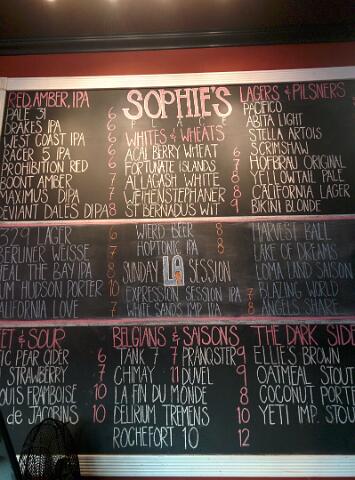 RED, AMBER, IPA
PALE 31 6
DRAKES IPA 6
WEST COAST IPA 6
RACER 5 IPA 6
PROHIBITION RED 6
BOONT AMBER 7
MAXIMUS DIPA 7
DEVIANT DALES DIPA 8
SOPHIE'S
WHITES & WHEATS
ACAI BERRY WHEAT 6
FORTUNATE ISLANDS 7
ALLAGASH WHITE 8
WEIHENSTEPHANER 8
ST BERNADUS WIT 9
LAGERS & PILSNERS
PACIFICO
ABITA LIGHT
STELLA ARTOIS
SCRIMSHAW
HOFBRAU ORIGINAL
YELLOWTAIL PALE
CALIFORNIA LAGER
BIKINI BLONDE
329 LAGER 6
BERLINER WEISSE 7
HEAL THE BAY IPA 8
UM HUDSON PORTER 10
CALIFORNIA LOVE 7
WIERD BEER 8
HOPTONIC IPA 8
SUNDAY LA SESSION
EXPRESSION SESSION IPA 7
WHITE SANDS IMP IPA 8
HARVEST BALL
LAKE OF DREAMS
LOMA LAND SAISON
BLAZING WORLD
ANGELS SHARE
ET & SOUR
TIC PEAR CIDER 6
STRAWBERRY 7
OUIS FRAMBOISE 10
de JACOBINS 10
BELGIANS & SAISONS
TANK 7 7 PRANQSTER 9
CHIMAY 11 DUVEL 9
LA FIN DU MONDE 8
DELIRIUM TREMENS 10
ROCHEFORT 10 12
THE DARK SIDE
ELLIES BROWN
OATMEAL STOUT
COCONUT PORTER
YETI IMP. STOU